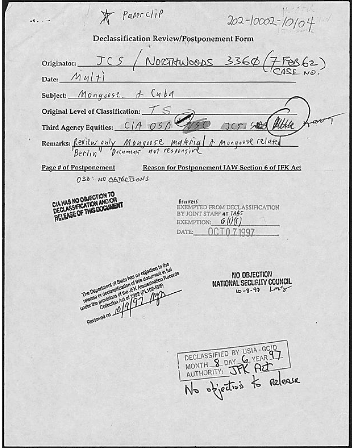 ☆ Paperclip
202-10002-10104
Declassification Review/Postponement Form
Originator: JCS / NORTHWOODS 3360 (7 FEB 62)
CASE NO.
Date: Multi
Subject: Mongoose & Cuba
Original Level of Classification: TS
Third Agency Equities: CIA OSD
Remarks: Review only Mongoose material & Mongoose related
"Berlin" Document not responsive
Page # of Postponement Reason for Postponement IAW Section 6 of JFK Act
OSD: NO OBJECTIONS
CIA HAS NO OBJECTION TO
DECLASSIFICATION AND/OR
RELEASE OF THIS DOCUMENT
EXEMPTED FROM DECLASSIFICATION
BY JOINT STAFF
EXEMPTION:
DATE: OCT 07 1997
The Department of State has no objection to the
release or declassification of this document in full
under the provisions of the JFK Assassination Records
Collection Act of 1992
Reviewed on 10/9/97
NO OBJECTION
NATIONAL SECURITY COUNCIL
DECLASSIFIED BY USIA-GC/D
MONTH 8 DAY 6 YEAR 97
AUTHORITY: JFK Act
No objections to release